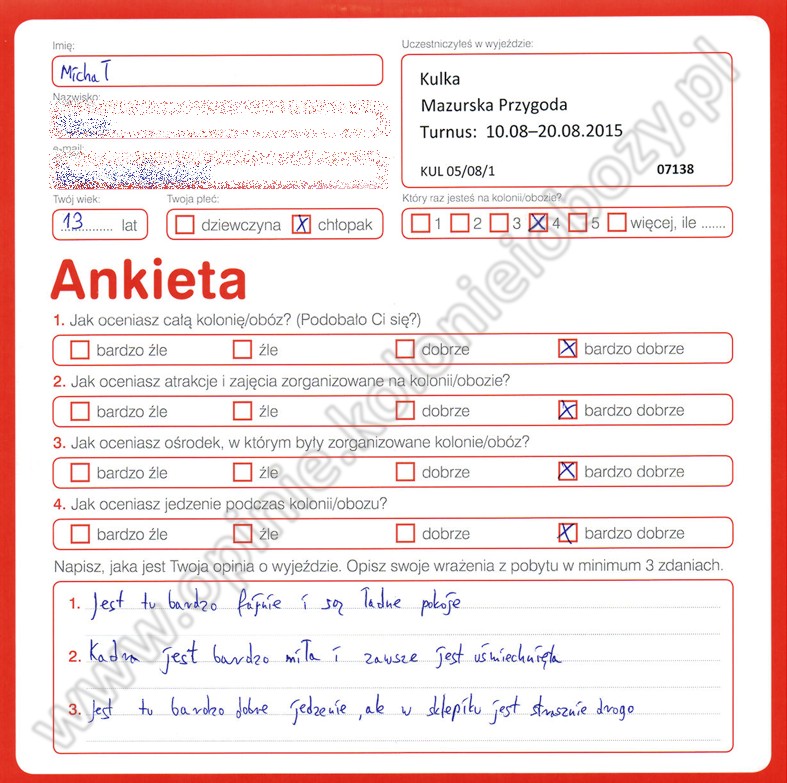 Imię:
Michał
Uczestniczyłeś w wyjeździe:
Kulka
Mazurska Przygoda
Turnus: 10.08–20.08.2015
KUL 05/08/1 07138
Nazwisko:
e-mail:
Twój wiek:
13 lat
Twoja płeć:
dziewczyna chłopak
Który raz jesteś na kolonii/obozie?
1 2 3 4 5 więcej, ile .......
Ankieta
1. Jak oceniasz całą kolonię/obóz? (Podobało Ci się?)
bardzo źle źle dobrze bardzo dobrze
2. Jak oceniasz atrakcje i zajęcia zorganizowane na kolonii/obozie?
bardzo źle źle dobrze bardzo dobrze
3. Jak oceniasz ośrodek, w którym były zorganizowane kolonie/obóz?
bardzo źle źle dobrze bardzo dobrze
4. Jak oceniasz jedzenie podczas kolonii/obozu?
bardzo źle źle dobrze bardzo dobrze
Napisz, jaka jest Twoja opinia o wyjeździe. Opisz swoje wrażenia z pobytu w minimum 3 zdaniach.
1. Jest tu bardzo fajnie i są ładne pokoje
2. Kadra jest bardzo miła i zawsze jest uśmiechnięta
3. Jest tu bardzo dobre jedzenie, ale w sklepiku jest strasznie drogo
www.opinie.kolonieiobozy.pl